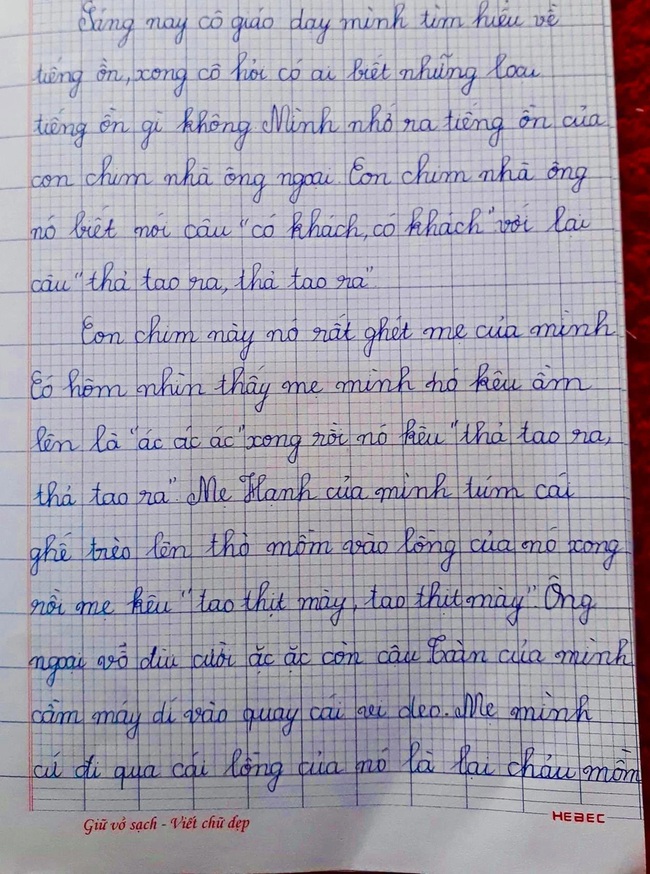 Sáng nay cô giáo dạy mình tìm hiểu về
tiếng ồn, xong cô hỏi có ai biết những loại
tiếng ồn gì không Mình nhớ ra tiếng ồn của
con chim nhà ông ngoại. Con chim nhà ông
nó biết nói câu "có khách, có khách" với lại
câu "thả tao ra, thả tao ra"
Con chim này nó rất ghét mẹ của mình
Có hôm nhìn thấy mẹ mình nó kêu ầm
lên là "ác ác ác" xong rồi nó kêu "thả tao ra,
thả tao ra". Mẹ Hạnh của mình túm cái
ghế trèo lên thò mồm vào lồng của nó xong
rồi mẹ kêu "tao thịt mày, tao thịt mày". Ông
ngoại vỗ đùi cười ặc ặc còn cậu Toàn của mình
cầm máy dí vào quay cái vi deo. Mẹ mình
cứ đi qua cái lồng của nó là lại chẩu mồm
Giữ vở sạch - Viết chữ đẹp
HEBEC